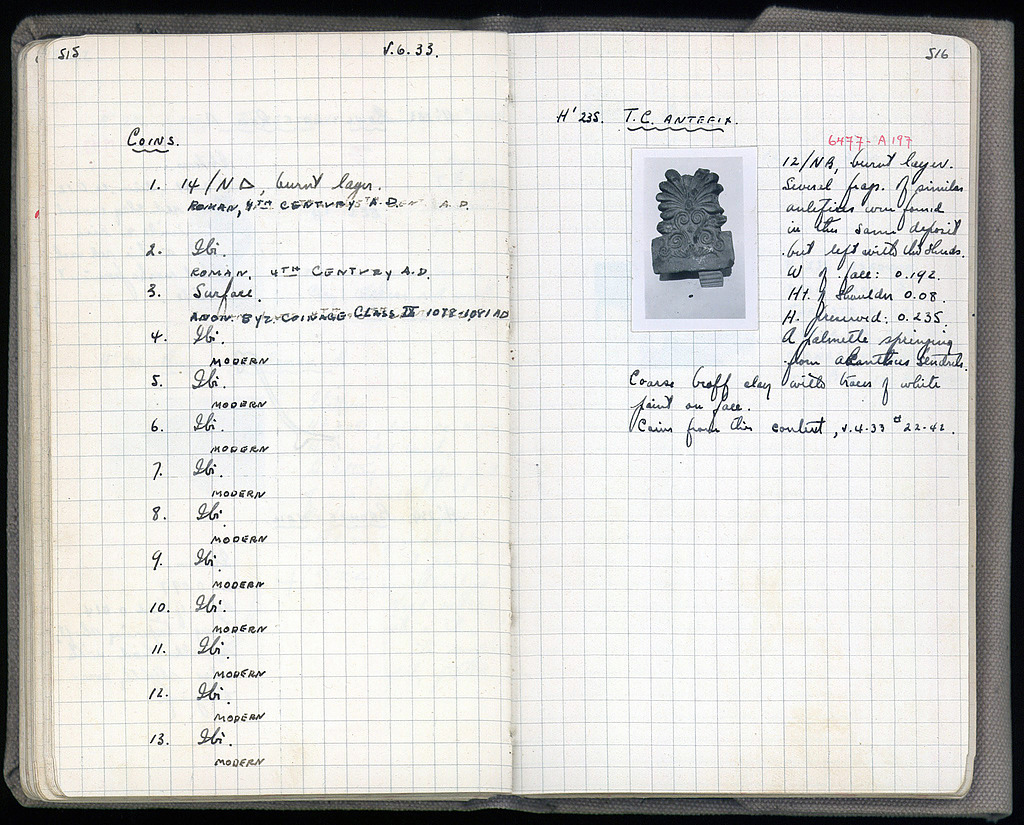 515
V.6.33.
COINS.
1. 14/NΔ, burnt layer.
ROMAN, 4TH CENTURY A.D.
2. Ibi.
ROMAN, 4TH CENTURY A.D.
3. Surface.
ANON. BYZ. COINAGE CLASS IX 1078-1081 AD
4. Ibi.
MODERN
5. Ibi.
MODERN
6. Ibi.
MODERN
7. Ibi.
MODERN
8. Ibi.
MODERN
9. Ibi.
MODERN
10. Ibi.
MODERN
11. Ibi.
MODERN
12. Ibi.
MODERN
13. Ibi.
MODERN
516
H' 235. T.C. ANTEFIX.
6477- A 197
12/NB, burnt layer.
Several frags. of similar
antefixes were found
in the same deposit
but left with the sherds.
W of face: 0.192.
Ht. of shoulder 0.08.
H. preserved: 0.235.
A palmette springing
from acanthus tendrils.
Coarse buff clay with traces of white
paint on face.
Coins from this context, V.4.33 # 22-42.